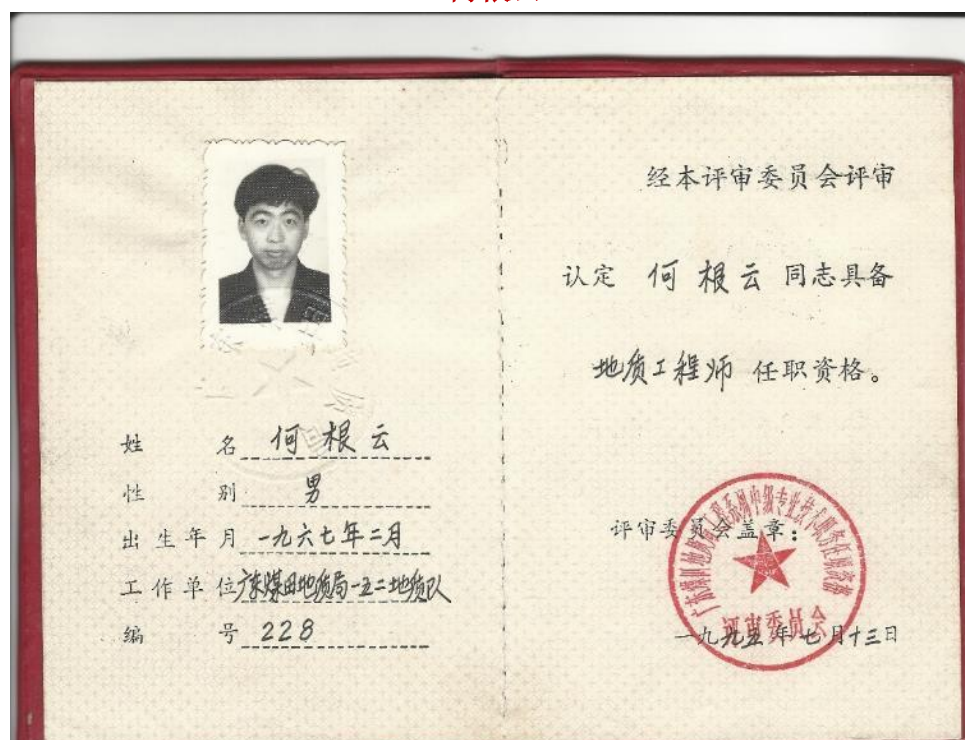 姓 名 何根云
性 别 男
出生年月 一九六七年二月
工作单位 广东煤田地质局一五二地质队
编 号 228
经本评审委员会评审
认定 何根云 同志具备
地质工程师 任职资格。
评审委员会盖章：
评审委员会
一九九五年七月十三日